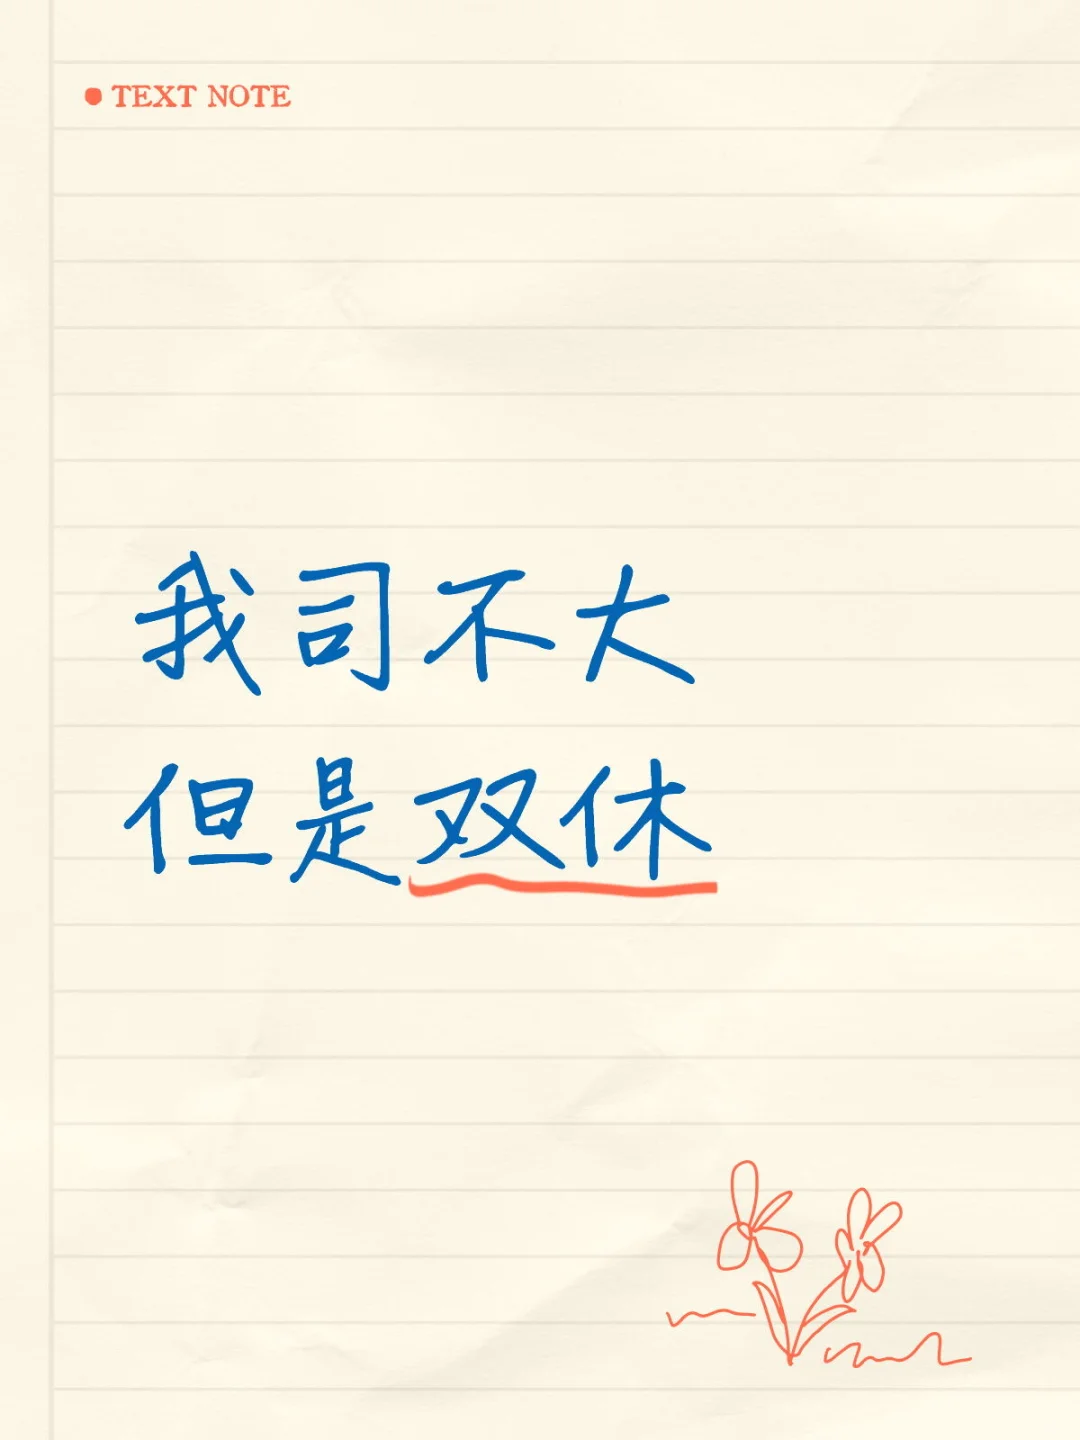 TEXT NOTE
我司不大
但是双休